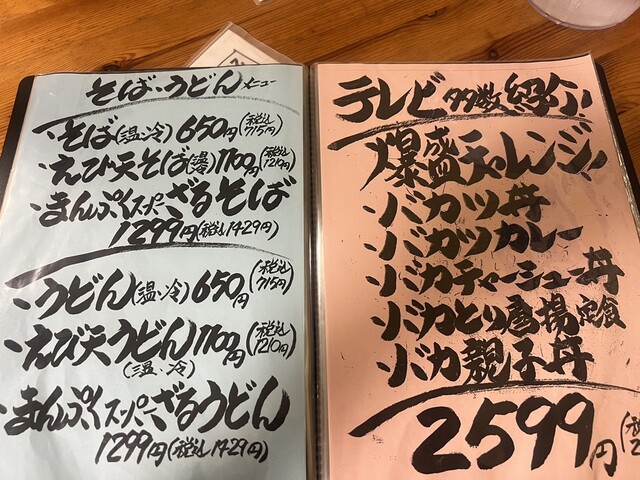 そば・うどんメニュー
・そば(温・冷)650円(税込715円)
・えび天そば(温・冷)1100円(税込1210円)
・まんぷくスーパーざるそば
1299円(税込1429円)
・うどん(温・冷)650円(税込715円)
・えび天うどん1100円(税込1210円)
(温・冷)
・まんぷくスーパーざるうどん
1299円(税込1429円)
テレビ多数紹介
爆盛チャレンジ
・バカツ丼
・バカツカレー
・バカチャーシュー丼
・バカとり唐揚定食
・バカ親子丼
2599円(税